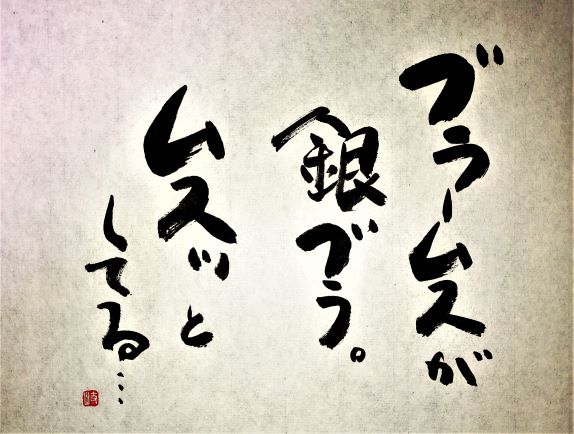 ブラームスが
銀ブラ。
ムスッと
してる…